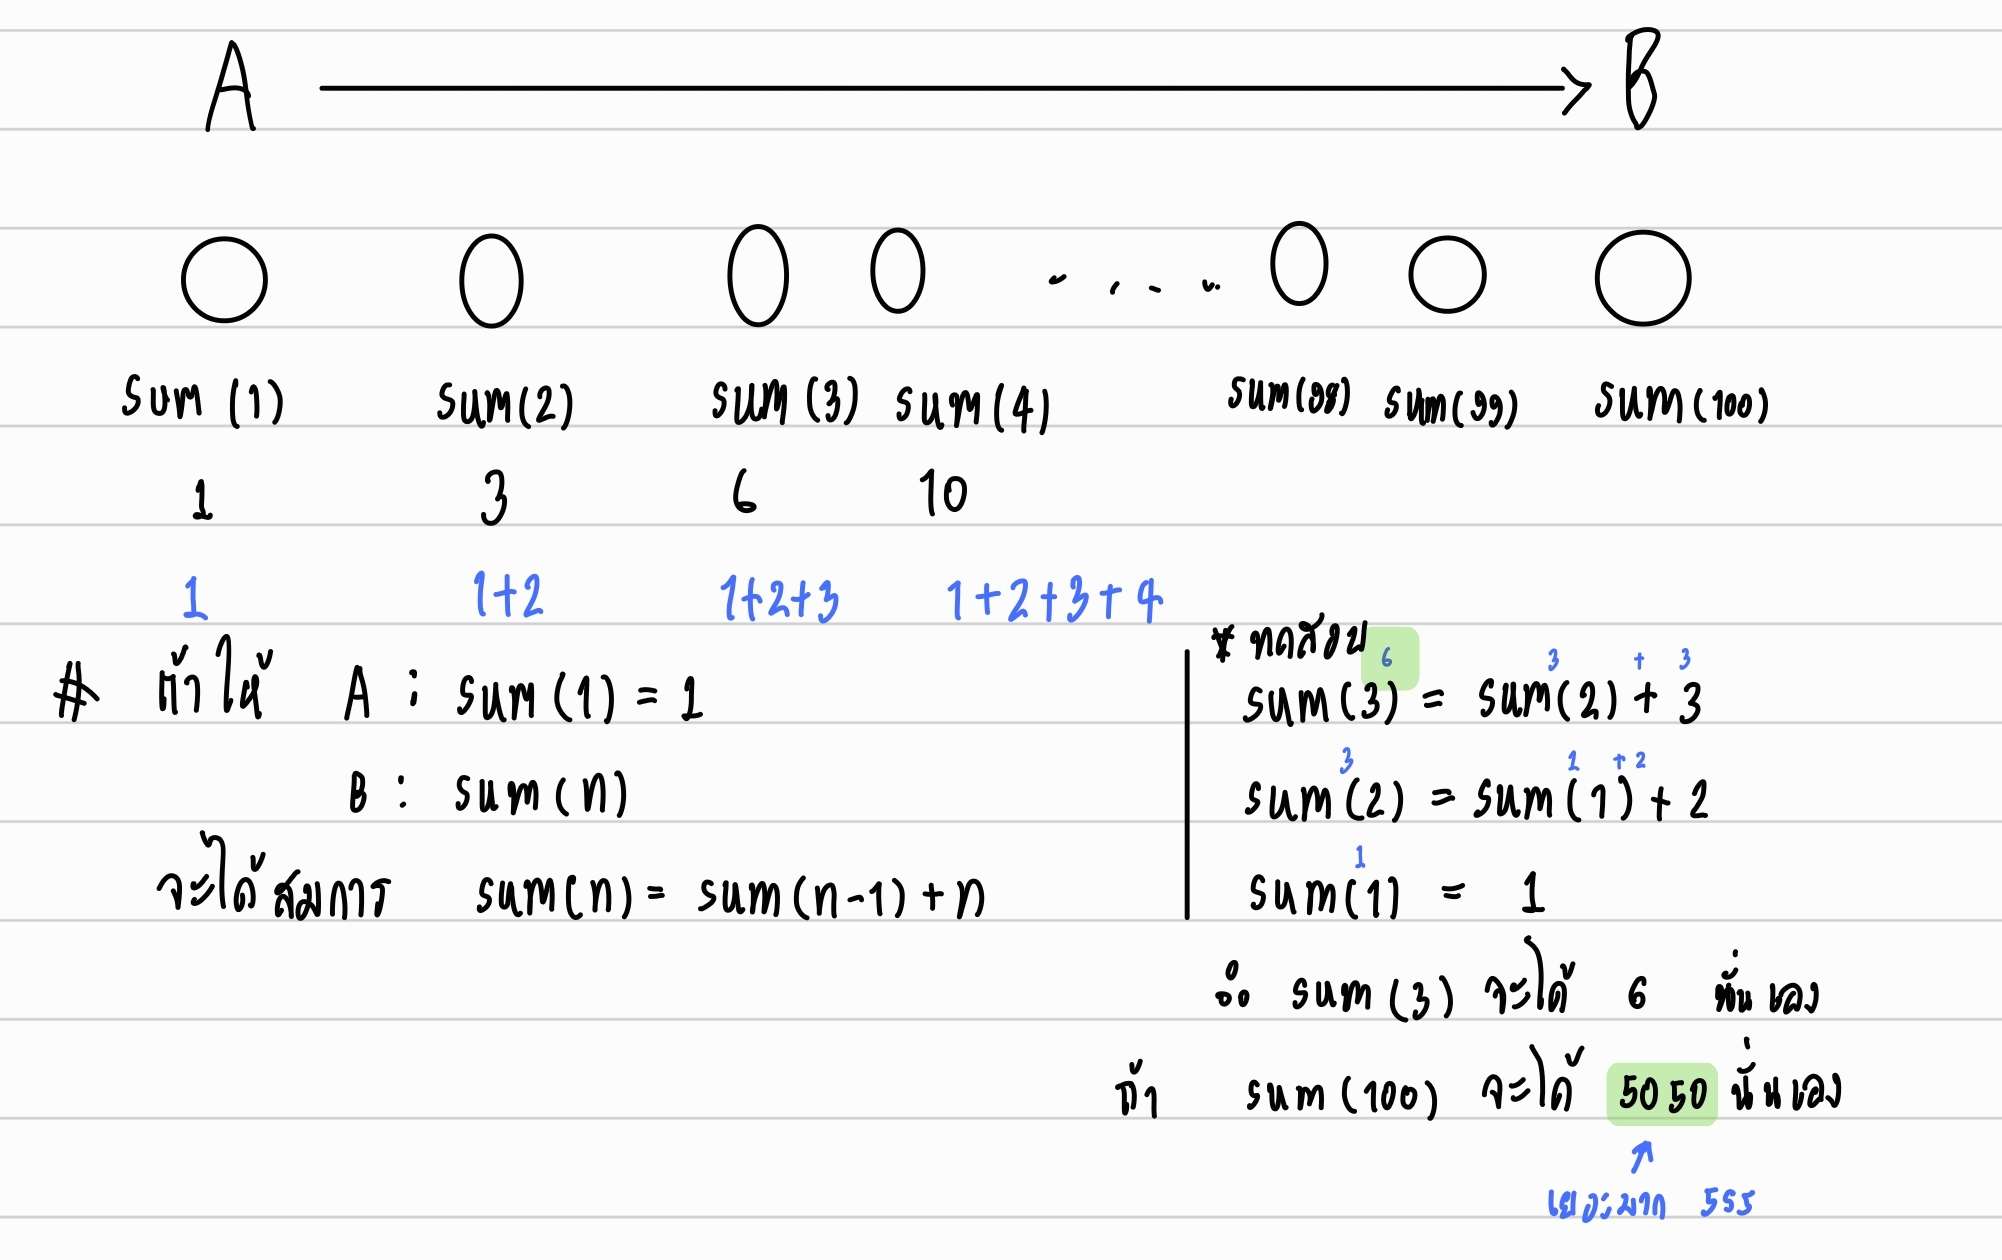 A → B
sum (1) sum(2) sum (3) sum (4) .... sum(98) sum(99) sum(100)
1 3 6 10
1 1+2 1+2+3 1+2+3+4
# ถ้าให้ A : sum (1) = 1
B : sum (n)
จะได้ สมการ sum(n) = sum(n-1) + n
* ทดสอบ
6 3 + 3
sum(3) = sum(2) + 3
3 1 + 2
sum(2) = sum(1) + 2
1
sum(1) = 1
∴ sum (3) จะได้ 6 นั่นเอง
ถ้า sum (100) จะได้ 5050 นั่นเอง
เยอะมาก 555